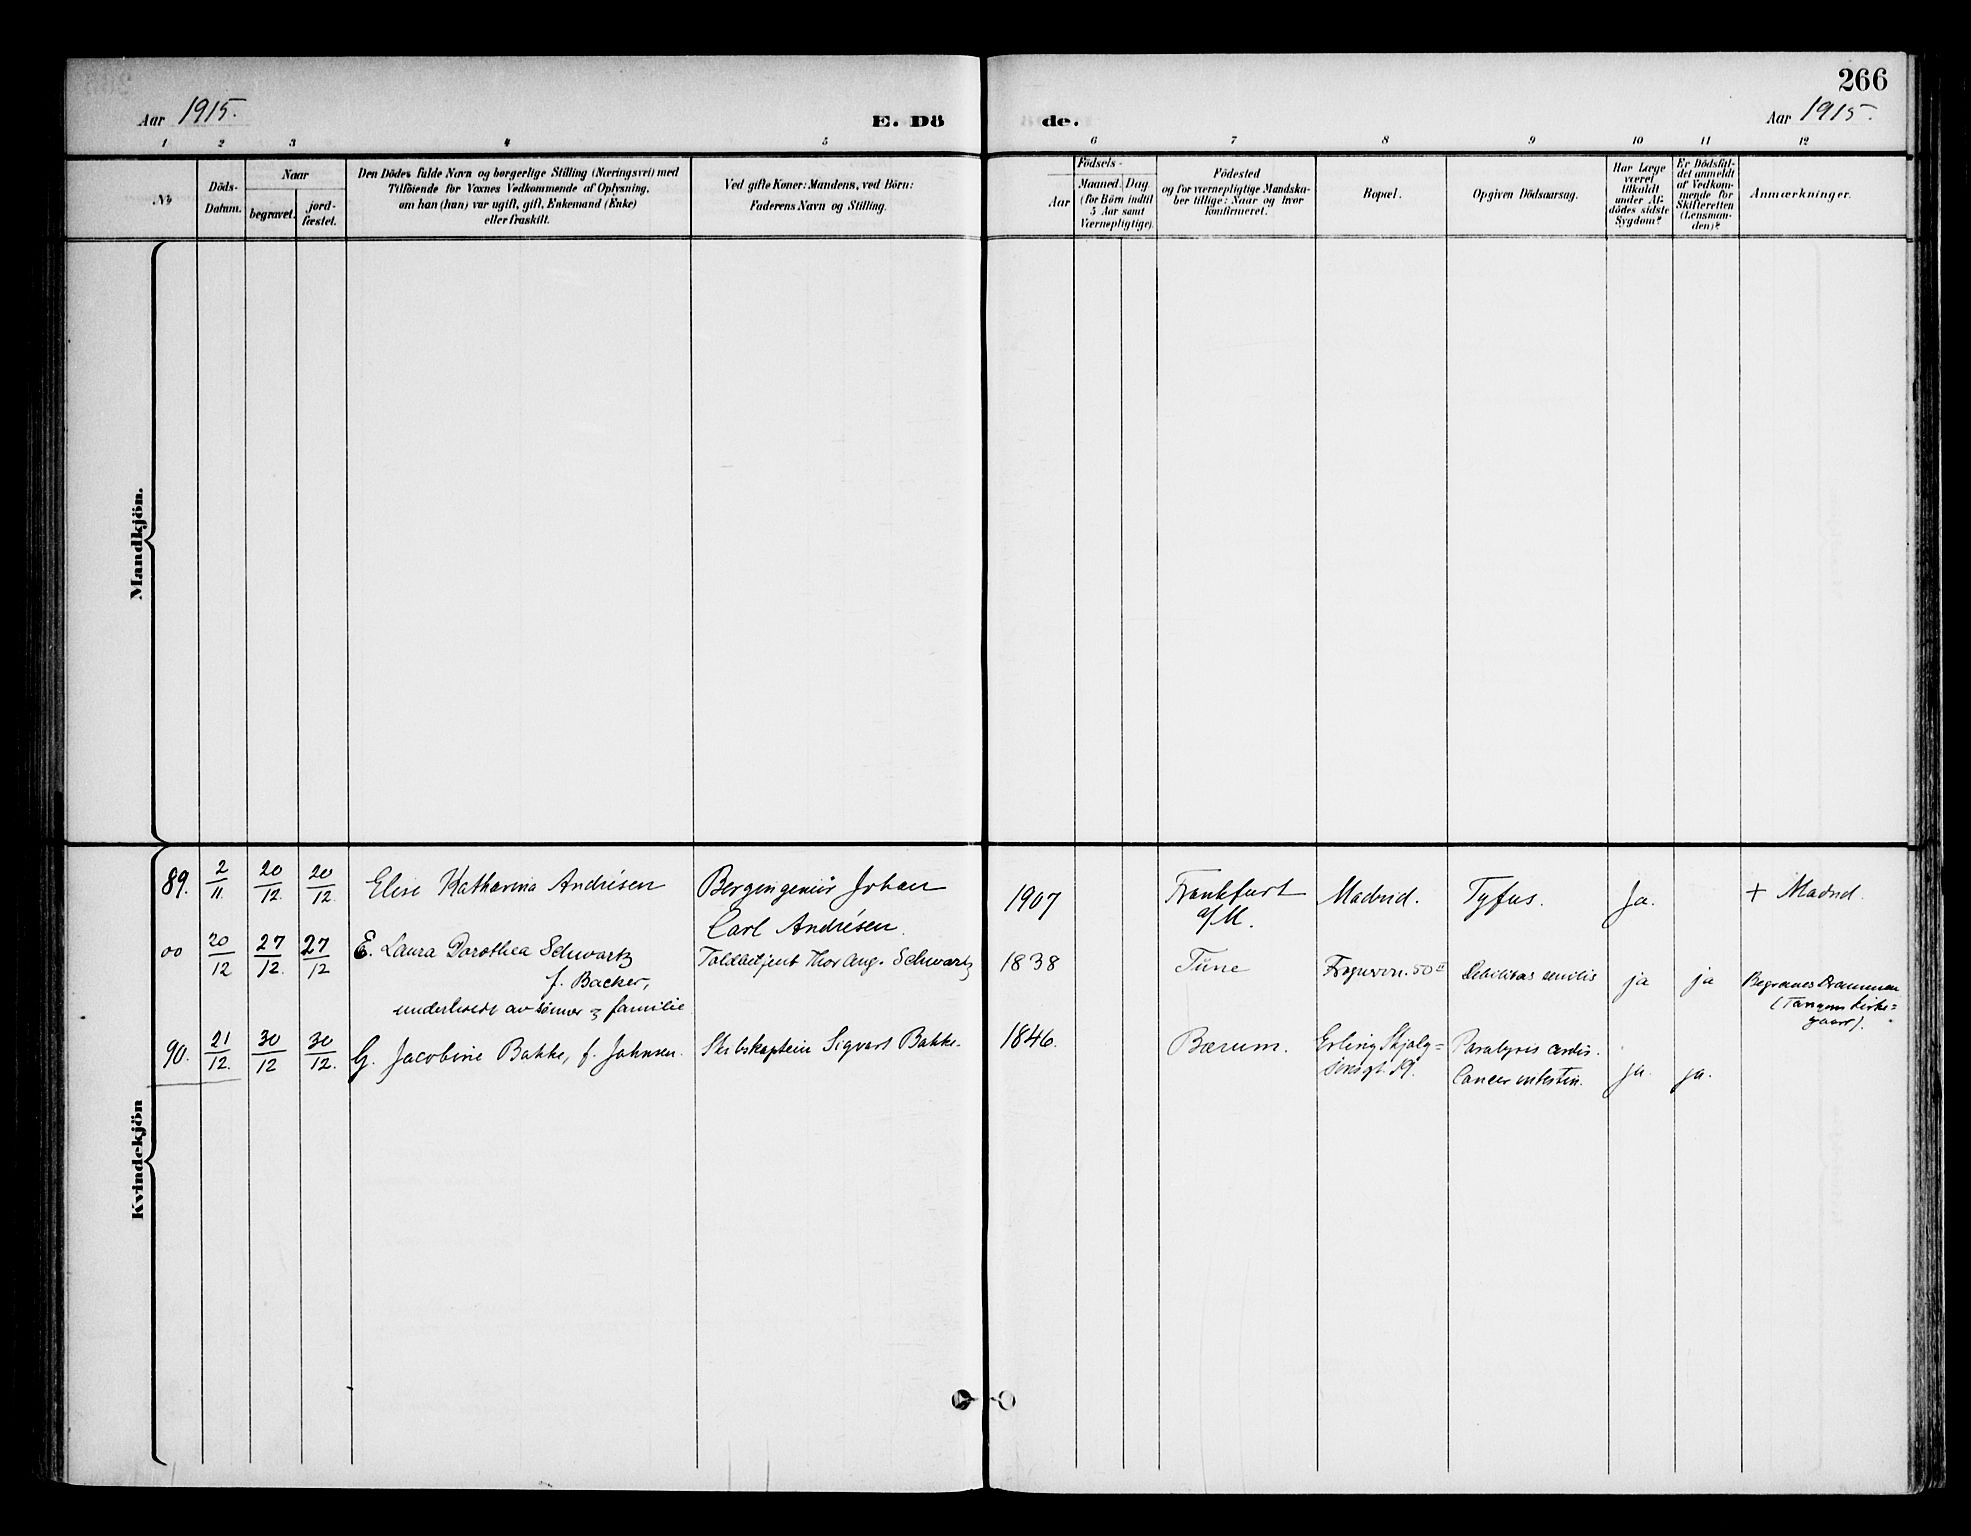 266
Aar 1915.
E. Dö
de.
Aar 1915.
1 2 3 4 5 6 7 8 9 10 11 12
No
Döds-
Datum.
Naar
begravet.
jord-
fæstet.
Den Dödes fulde Navn og borgerlige Stilling (Næringsvei) med
Tilföiende for Voxnes Vedkommende af Oplysning,
om han (hun) var ugift, gift, Enkemand (Enke)
eller fraskilt.
Ved gifte Koner: Mandens, ved Börn:
Faderens Navn og Stilling.
Födsels-
Aar
Maaned. Dag.
(for Börn indtil
5 Aar samt
Værnepligtige).
Födested
og for værnepligtige Mandska-
ber tillige: Naar og hvor
konfirmeret.
Bopæl.
Opgiven Dödsaarsag.
Har Læge
været
tilkaldt
under Af-
dödes sidste
Sygdom?
Er Dödsfal-
det anmeldt
af Vedkom-
mende for
Skifteretten
(Lensman-
den)?
Anmærkninger.
Mandkjön.
Kvindekjön
89. 2/11. 20/12. 20/12. Elise Katharina Andrésen Bergingeniör Johan
Carl Andrésen.
1907 Frankfurt
a/M.
Madrid. Tyfus. Ja. + Madrid.
00 20/12 27/12. 27/12 E. Laura Dorothea Schwartz
f. Backer,
underholdt av sönner og familie
Toldbetjent Thor Aug. Schwartz
1838 Tune Frognervn. 50 II Debilitas senilis ja ja Begraves Drammen
(Tangens kirke-
gaard).
90. 21/12. 30/12 30/12. G. Jacobine Bakke, f. Johnsen. Skibskaptein Sigvart Bakke.
1846. Bærum. Erling Skjalg-
sönsgt. 19.
Paralysis cordis.
Cancer intestin.
ja. ja.